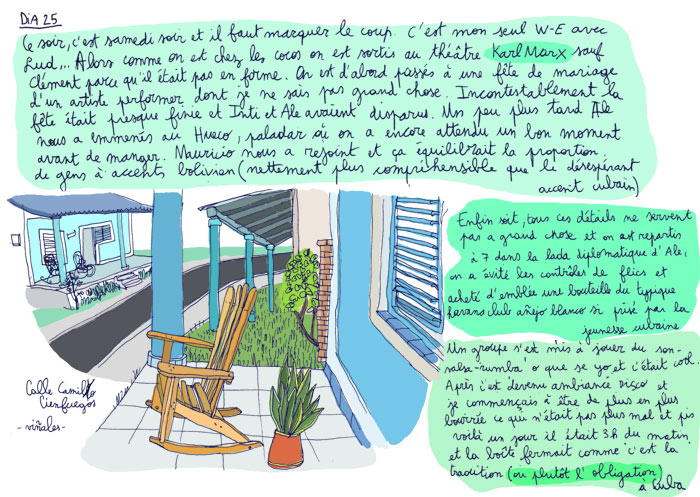 DiA 25
Ce soir, c'est samedi soir et il faut marquer le coup. C'est mon seul W-E avec
Lud,.. Alors comme on est chez les cocos on est sortis au théâtre Karl Marx sauf
Clément parce qu'il était pas en forme. On est d'abord passés à une fête de mariage
d'un artiste performer dont je ne sais pas grand chose. Incontestablement la
fête était presque finie et Inti et Ale avaient disparus. Un peu plus tard Ale
nous a emmenés au Hueco, paladar où on a encore attendu un bon moment
avant de manger. Mauricio nous a rejoint et ça équilibrait la proportion
de gens à accents bolivien (nettement plus compréhensible que le désespérant
accent cubain)
Enfin soit, tous ces détails ne servent
pas a grand chose et on est repartis
à 7 dans la lada diplomatique d'Ale,
on a évité les contrôles de flics et
acheté d'emblée une bouteille du typique
havana club añejo blanco si prisé par la
jeunesse cubaine
Un groupe s'est mis à jouer du son-
salsa-rumba' o que se yo et c'était cool.
Après c'est devenu ambiance disco et
je commençais à être de plus en plus
bourrée ce qui n'était pas plus mal et pis
voilà un jour il était 3h du matin
et la boîte fermait comme c'est la
tradition (ou plutôt l'obligation)
à Cuba
Calle Camillo
Cienfuegos
- viñales -